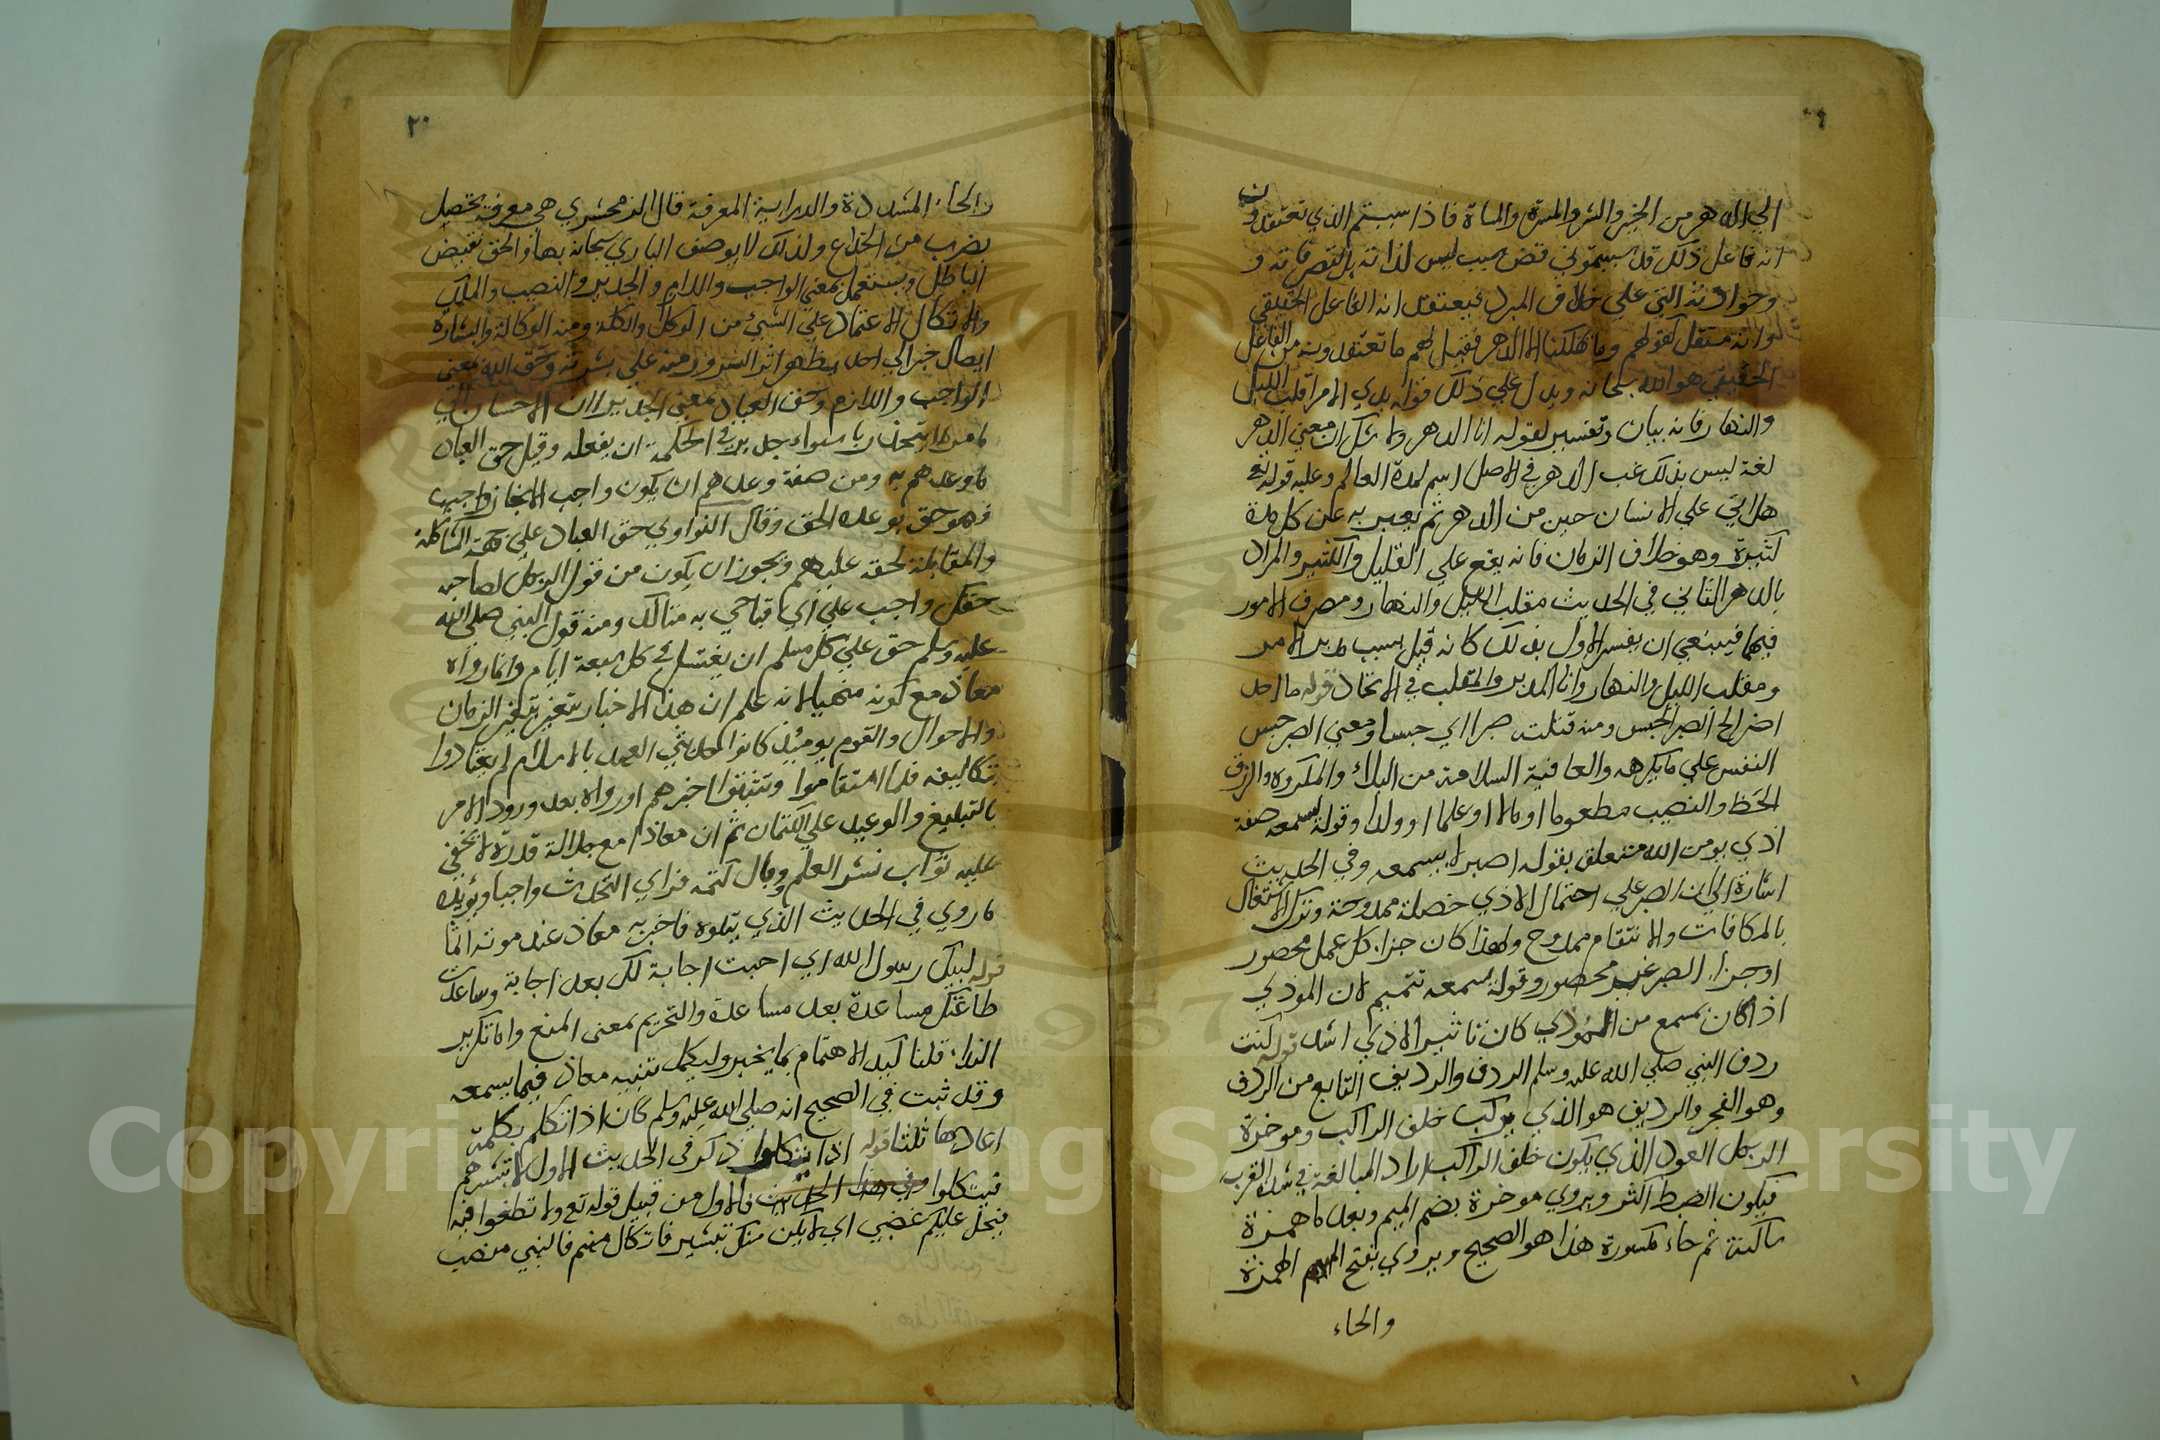 الي الدهر من الخير والشر والمسرة والمساة فاذا سببتم الذي تعتقدون
انه فاعل ذلك قد سببتموني قض سبب ليس لذاته بل لتصرفاته و
وحوادثه التي علي خلاف المراد فيعتقد انه الفاعل الحقيقي
لو انه مستقل كقولهم وما يهلكنا الا الدهر فقيل لهم ما تعتقدونه من الفاعل
الحقيقي هو الله سبحانه ويدل علي ذلك قوله بيدي الامر اقلب الليل
والنهار فانه بيان وتفسير لقوله انا الدهر ولا شك ان معني الدهر
لغة ليس بذلك غب الدهر في الاصل اسم لمدة العالم وعليه قوله تع
هل اتي علي الانسان حين من الدهر ثم يعبر به عن كل مدة
كثيرة وهو خلاف الزمان فانه يقع علي القليل والكثير والمراد
بالدهر الثاني في الحديث مقلب الليل والنهار ومصرف الامور
فيها فينبغي ان يفسر الاول بذلك كانه قيل بسبب مدبر الامر
ومقلب الليل والنهار وانا المدبر والمقلب في الاتحاد قوله ما احد
اصبر الخ الصبر الحبس ومنه قتلت صبرا اي حبسا ومعني الصبر حبس
النفس علي ما يكرهه والعافية السلامة من البلاء والمكروه والرزق
الحظ والنصيب مطعوما او مالا او علما او ولدا وقوله يسمعه صفة
اذي يو من الله متعلق بقوله اصبر لا يسمعه وفي الحديث
اشارة الي ان الصبر علي احتمال الاذي خصلة ممدوحة وترك الاشتغال
بالمكافات والانتقام ممدوح ولهذا كان جزاء كل عمل محصور
او جزاء الصبر غير محصور وقوله يسمعه تتميم لان الموذي
اذا كان بمسمع من الموذي كان تاثير الاذي اشد قوله كنت
ردف النبي صلي الله عليه وسلم الردف والرديف التابع من الردف
وهو الفجر والرديف هو الذي يركب خلف الراكب وموخرة
الرحل العود الذي يكون خلف الراكب اراد المبالغة في شدة القرب
فيكون الضبط اكثر ويروي موخرة بضم الميم وبعدها همزة
ساكنة ثم خاء مكسورة هذا هو الصحيح ويروي بفتح الميم الهمزة
والخاء
٢٠
والخاء المشددة والدراية المعرفة قال الزمخشري هي معرفة تحصل
بضرب من الخداع ولذلك لا يوصف الباري سبحانه بها والحق نقيض
الباطل ويستعمل بمعني الواجب واللازم والجدير والنصيب والملك
والاتكال الاعتماد علي الشيء من الوكل والتكلة ومنه الوكالة والبشارة
ايصال خبر الي احد يظهر اثر السرور منه علي بشرته وحق الله بمعني
الواجب واللازم وحق العباد بمعني الجدير لان الاحسان الي
من لا يتخذ ربا سواه جدير في الحكمة ان يفعله وقيل حق العباد
ما وعدهم به ومن صفة وعدهم ان يكون واجب الانجاز واجب
فهو حق بوعده الحق وقال النواوي حق العباد علي جهة المشاكلة
والمقابلة لحقه عليهم ويجوز ان يكون من قول الرجل لصاحبه
حقك واجب علي اي قيامي به متاكد ومنه قول النبي صلي الله
عليه وسلم حق علي كل مسلم ان يغتسل في كل سبعة ايام وانما رواه
معاذ مع كونه منهيا لانه علم ان هذا الاخبار يتغير بتغير الزمان
والاحوال والقوم يومئذ كانوا حديثي العهد بالاسلام لم يعتادوا
بتكاليفه فلما استقاموا وتثبتوا اخبرهم او رواه بعد ورود الامر
بالتبليغ والوعيد علي الكتمان ثم ان معاذا مع جلالة قدره لا يخفي
عليه ثواب نشر العلم ووبال كتمه فراي التحديث واجبا ويؤيده
ما روي في الحديث الذي يتلوه فاخبر به معاذ عند موته تاثما
قوله لبيك رسول الله اي اجبت اجابة لك بعد اجابة وساعدت
طاعتك مساعدة بعد مساعدة والتحريم بمعنى المنع واما تكرير
النداء قلنا كيد الاهتمام بما يخبر وليكمل تنبيه معاذ فيما يسمعه
وقد ثبت في الصحيح انه صلي الله عليه وسلم كان اذا تكلم بكلمة
اعادها ثلثا قوله اذا يتكلوا ذكر في الحديث الاول لا تبشرهم
فيتكلوا وفي هذا الحديث فالاول من قبيل قوله تع ولا تطغوا فيه
فيحل عليكم غضبي اي لا يكن منك تبشير فاتكال منهم فالنهي منصب